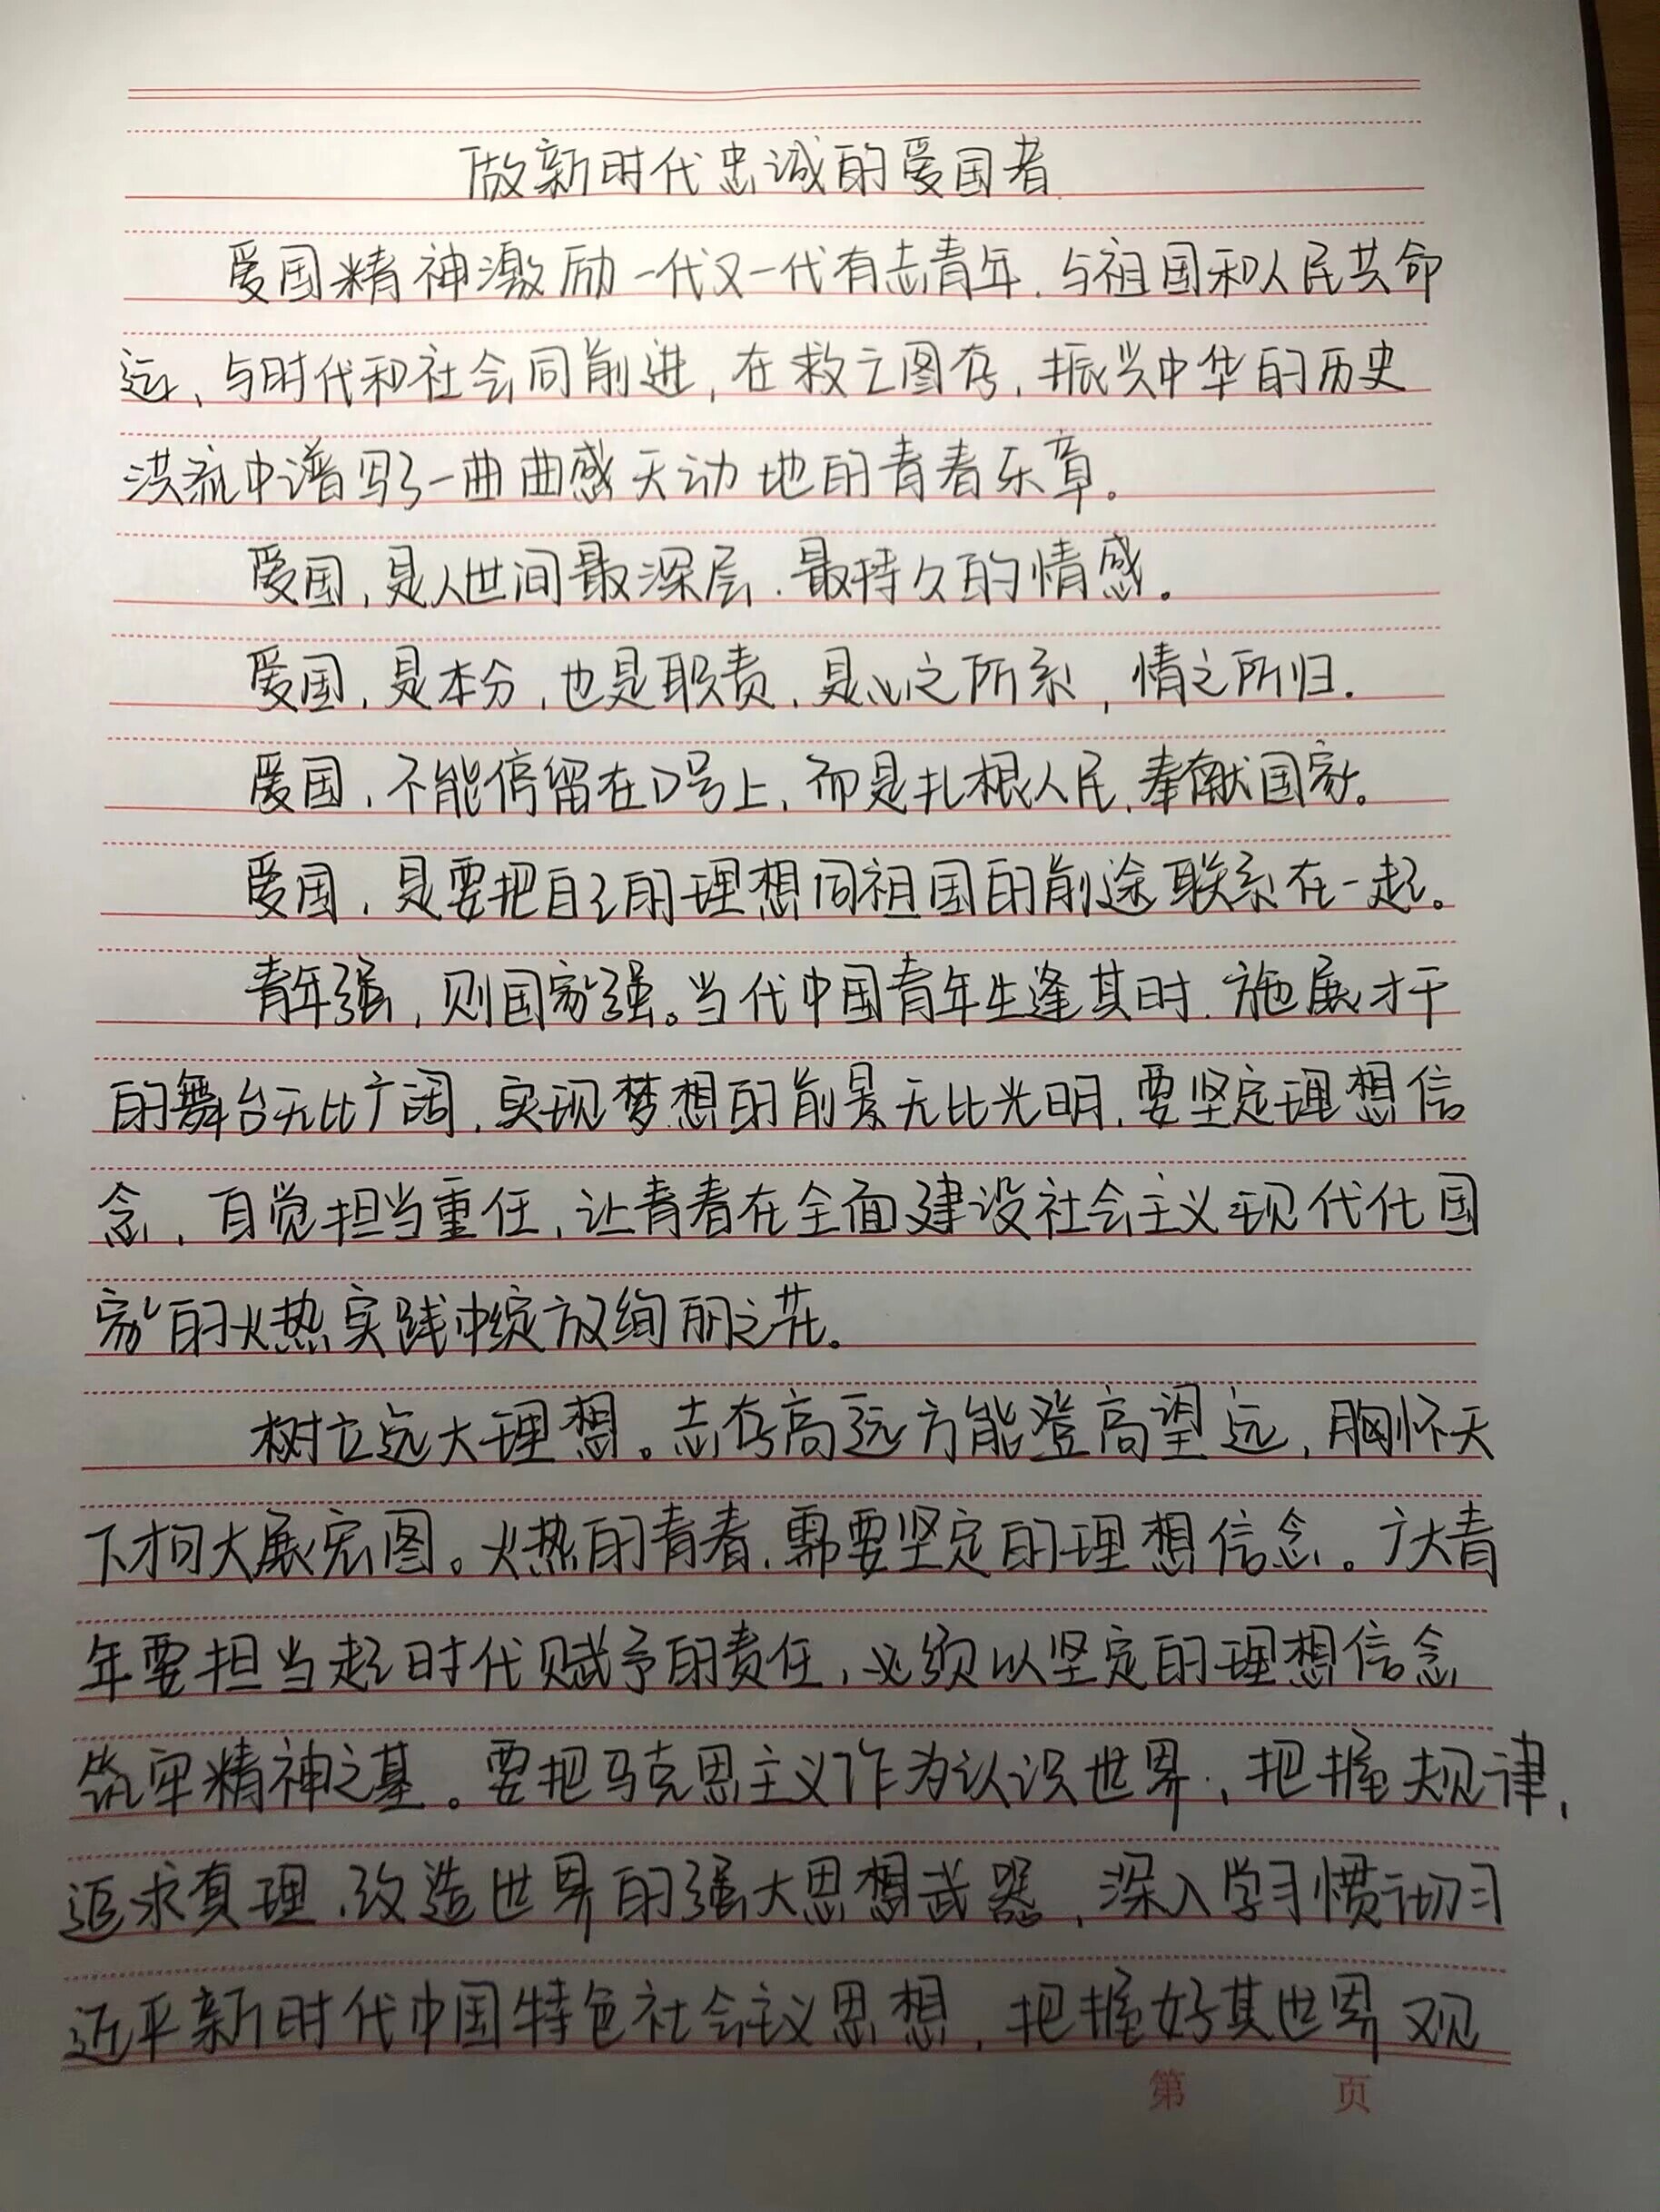 做新时代忠诚的爱国者
爱国精神激励一代又一代有志青年,与祖国和人民共命
运、与时代和社会同前进,在救亡图存,振兴中华的历史
洪流中谱写了一曲曲感天动地的青春乐章。
爱国,是人世间最深层、最持久的情感。
爱国,是本分,也是职责,是心之所系,情之所归.
爱国,不能停留在口号上,而是扎根人民,奉献国家。
爱国,是要把自己的理想同祖国的前途联系在一起。
青年强,则国家强。当代中国青年生逢其时.施展才干
的舞台无比广阔,实现梦想的前景无比光明,要坚定理想信
念,自觉担当重任,让青春在全面建设社会主义现代化国
家的火热实践中绽放绚丽之花。
树立远大理想。志存高远方能登高望远,胸怀天
下才可大展宏图。火热的青春,需要坚定的理想信念。广大青
年要担当起时代赋予的责任,必须以坚定的理想信念
筑牢精神之基。要把马克思主义作为认识世界、把握规律、
追求真理、改造世界的强大思想武器,深入学习贯彻习
近平新时代中国特色社会主义思想,把握好其世界观
第 页